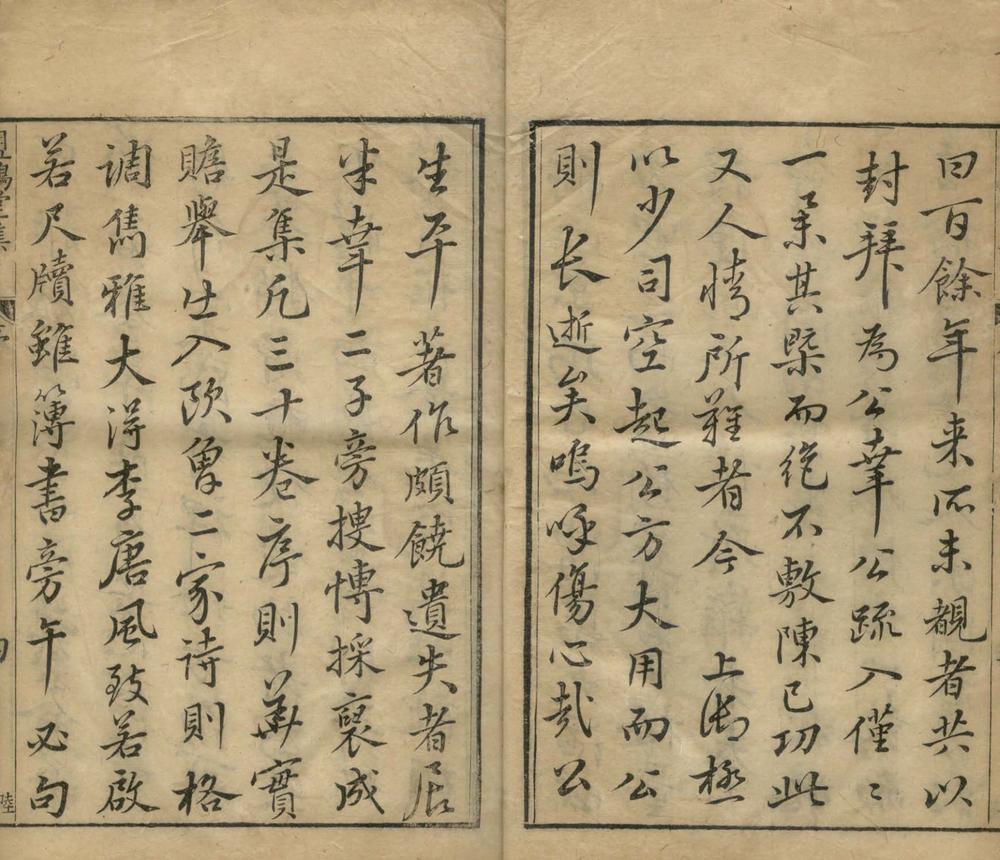 曰百餘年来所未覩者共以
封拜為公幸公疏入僅〻
一举其槩而絶不敷陳已功此
又人情所難者今 上御極
以少司空起公方大用而公
則长逝矣嗚呼傷心哉公
生平著作頗饒遺失者居
半幸二子旁搜愽採裒成
是集凡三十卷序則華實
贍舉出入欧曾二家詩則格
調雋雅大淂李唐風致若啟
若尺牘雖簿書旁午必句
堂集
陸